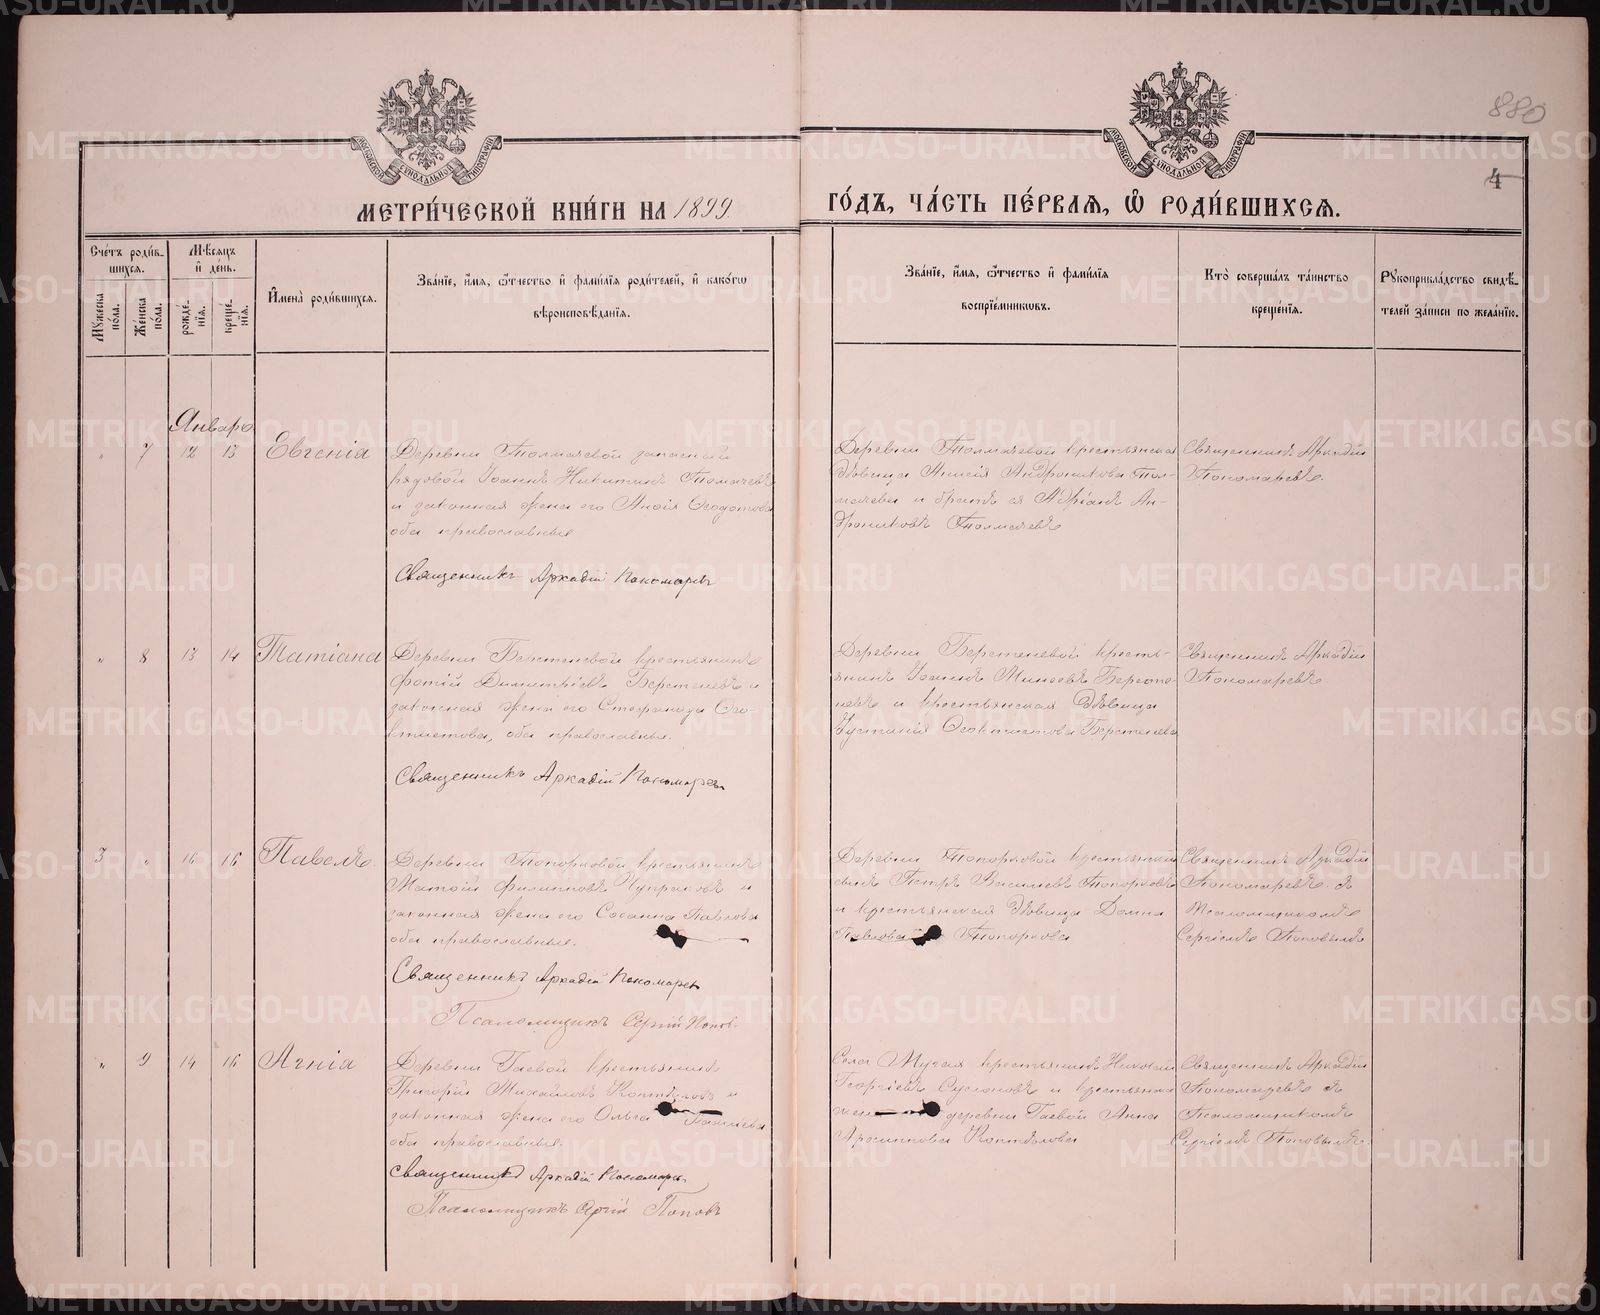 880
4
МОСКОВСКОЙ СѴНОДАЛЬНОЙ ТИПОГРАФІИ
МОСКОВСКОЙ СѴНОДАЛЬНОЙ ТИПОГРАФІИ
МЕТРИ́ЧЕСКОЙ КНИ́ГИ НА 1899
ГО́ДЪ, ЧА́СТЬ ПЕ́РВАѦ, Ѽ РОДИ́ВШИХСѦ.
Сче́тъ роди́в-
шихся.
Мѣ́сяцъ
и҆ де́нь.
Му́жеска по́ла.
Же́нска по́ла.
рожде́-нїя.
креще́-нїя.
И҆мена̀ роди́вшихся.
Зва́нїе, и҆́мя, ѻ҆́тчество и҆ фами́лїя роди́телей, и҆ како́гѡ
вѣроисповѣ́данїя.
Зва́нїе, и҆́мя, ѻ҆́тчество и҆ фами́лїя
воспрїе́мниковъ.
Кто̀ соверша́лъ та́инство
креще́нїя.
Рꙋкоприкла́дство свидѣ́-
телей за́писи по жела́нїю.
Январь
" 7 12 13 Евгенія
Деревни Толмачевой запасный
рядовой Іоаннъ Никитинъ Толмачевъ
и законная жена его Анисія Ѳеодотова
оба православные
Священникъ Аркадій Пономаревъ
Деревни Толмачевой крестьянская
вдовица Анисія Андроникова Тол-
мачева и братъ ея Адріанъ Ан-
дрониковъ Толмачевъ
Священникъ Аркадій
Пономаревъ.
" 8 13 14 Татіана
Деревни Берстеневой крестьянинъ
Фотій Димитріевъ Берстеневъ и
законная жена его Стефанида Ѳео-
ктистова, оба православные.
Священникъ Аркадій Пономаревъ
Деревни Берстеневой кресть-
янинъ Іоаннъ Берсте-
невъ и крестьянская вдовица
Ѳеоктистова Берстенева
Священникъ Аркадій
Пономаревъ.
3 " 16 16 Павелъ.
Деревни Топорковой крестьянинъ
Матѳій Филипповъ Чупраковъ и
законная жена его Сосанна Павлова
оба православные.
Священникъ Аркадій Пономаревъ
Псаломщикъ Сергій Поповъ.
Деревни Топорковой крестьянскій
сынъ Петръ Васильевъ Топорковъ
и крестьянская вдовица Домна
Павлова Топоркова
Священникъ Аркадій
Пономаревъ съ
псаломщикомъ
Сергіемъ Поповымъ
" 9 14 16 Агнія
Деревни Гаевой крестьянинъ
Григорій Михайловъ Коптѣловъ и
законная жена его Ольга
оба православные.
Священникъ Аркадій Пономаревъ
Псаломщикъ Сергій Поповъ
Села крестьянинъ Николай
Георгіевъ Суслоновъ и крестьянка
деревни Гаевой Анна
Коптѣлова
Священникъ Аркадій
Пономаревъ съ
псаломщикомъ
Сергіемъ Поповымъ.
METRIKI.GASO-URAL.RU